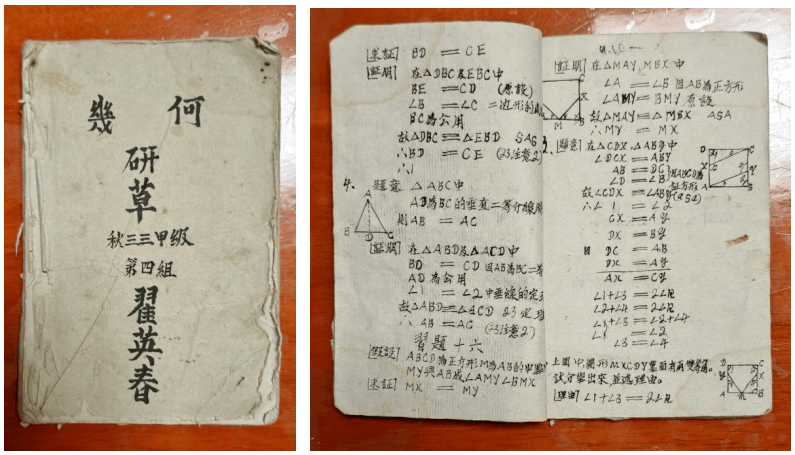 幾何
研草
秋三三甲級
第四組
翟英春
[求証] BD = CE
[証明] 在△DBC及EBC中
BE = CD (原設)
∠B = ∠C
BC為公用
故△DBC = △EBD SAS
∴BD = CE (23注意2)
4. 題意 △ABC中
AD為BC的垂直二等分線
則AB = AC
A
B D C
[証明] 在△ABD及△ACD中
BD = CD 因AB為BC二等
AD為公用
∠1 = ∠2 中垂線的定
故△ABD = △ACD 23定理
∴AB = AC (23注意2)
習題十六
[假設] ABCD為正方形M為AB的中
MY與AB成∠AMY ∠BMX
[求証] MX = MY
[証明] 在△MAY, MBX中
∠A = ∠B 因AB為正方形
∠AMY = BMY 原設
故△MAY = △MBX ASA
∴MY = MX
C
X
M B
3. [題意] 在△CDX, △ABY中
∠DCX = ABY
AB = DC
∠D = ∠B
因ABCD為
正方形
故∠CDX = ∠ABY (ASA)
∴∠1 = ∠2
CX = AY
DX = BY
因 DC = AB
DX = AY
AX = CY
∠1+∠3 = 2∠R
∠2+∠4 = 2∠R
∠1+∠3 = ∠2+∠4
∠1 = ∠2
∠3 = ∠4
上圖中,圖形MXCDY裏面有兩雙等角。
試分舉出來,並述理由。
[理由] ∠1+∠3 = 2∠R
D C
Y X
A M B